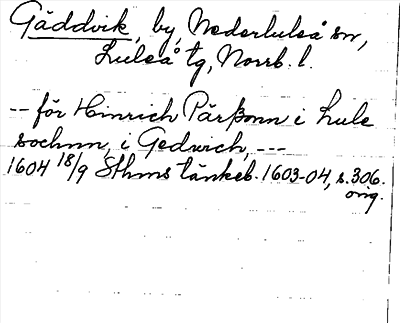 Gäddvik, by, Nederluleå sn,
Luleå tg, Norrb. l.
-- för Hinrich Pärßonn i Lule
sochnn, i Gedwich, ---
1604 18/9 Sthms tänkeb. 1603-04, s. 306.
orig.